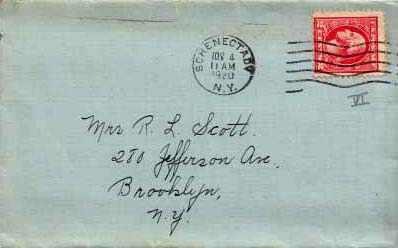 SCHENECTADY
NOV 4
11 AM
1920
N.Y.
VI
Mrs R. L. Scott.
280 Jefferson Ave.
Brooklyn,
N.Y.